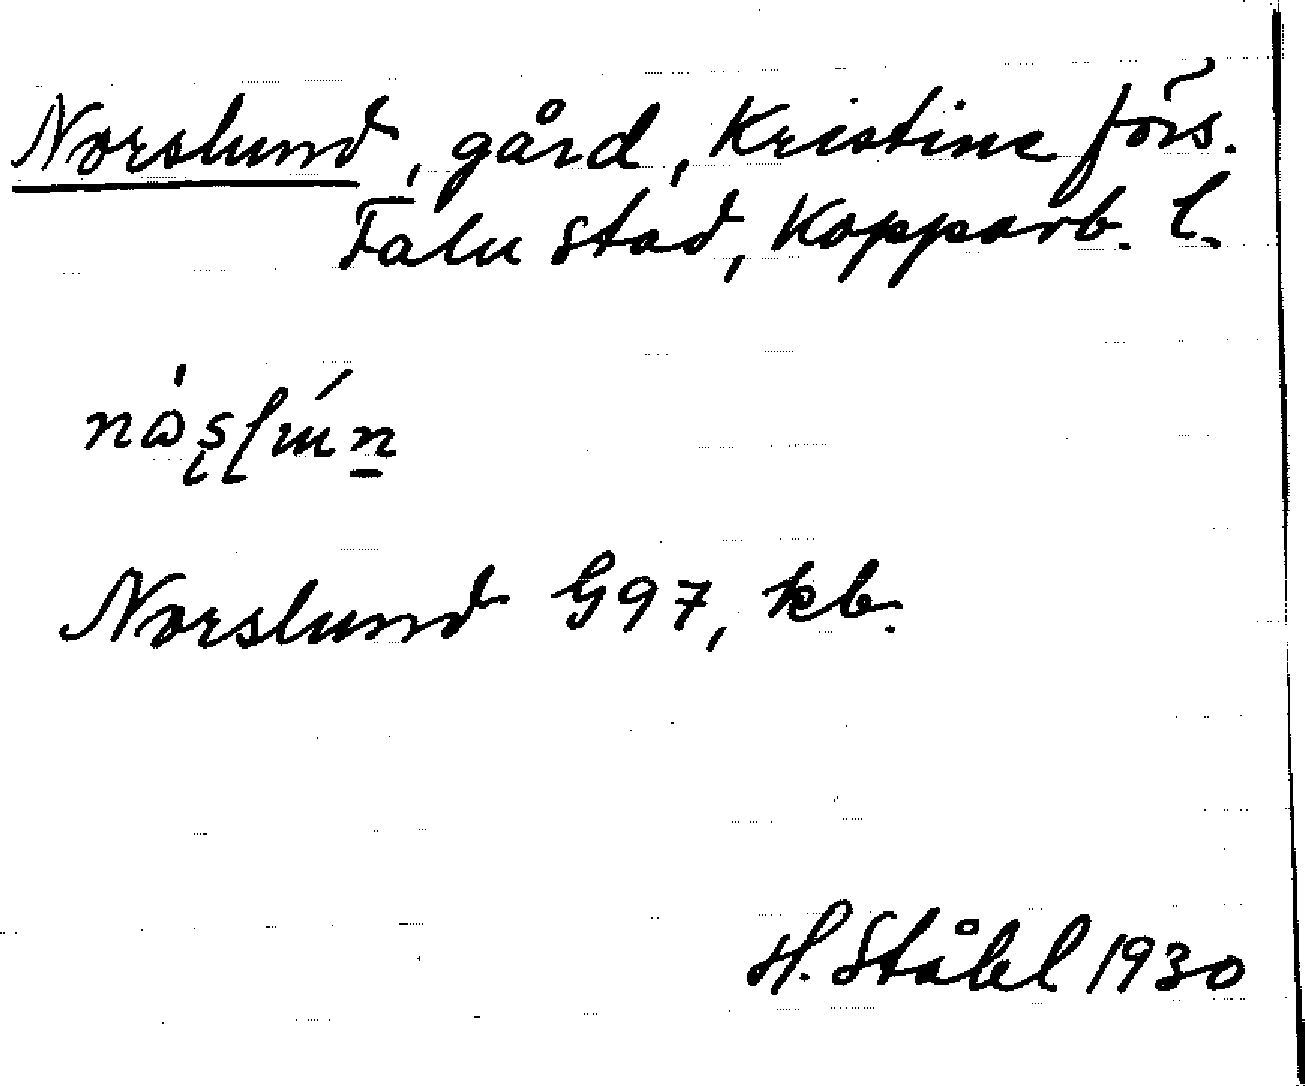 Norslund, gård, Kristine förs.
Falu stad, Kopparb. l.
Norslund G97, kb.
H. Ståhl 1930